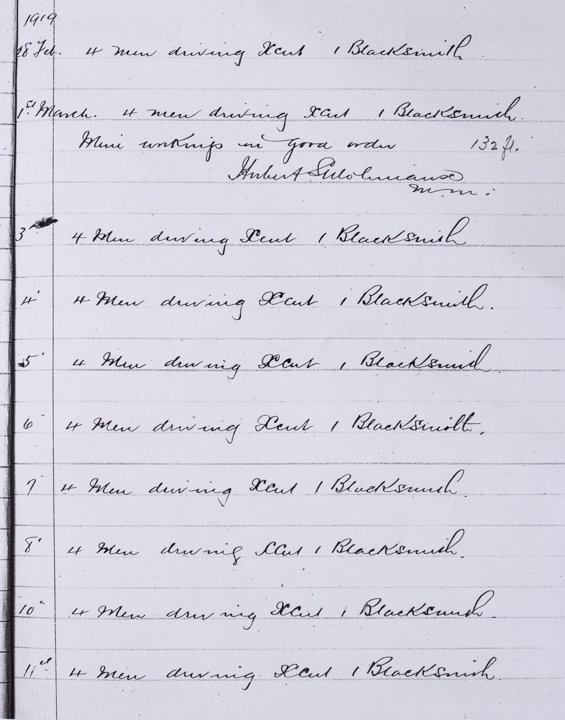 1919
28 Feb. 4 Men driving Xcut 1 Blacksmith
1st March. 4 men driving Xcut 1 Blacksmith.
Mine workings in good order 132 ft.
Hubert
M.M.
3 4 Men driving Xcut 1 Blacksmith
4 4 Men driving Xcut 1 Blacksmith.
5 4 Men driving Xcut 1 Blacksmith
6 4 Men driving Xcut 1 Blacksmith.
7 4 Men driving Xcut 1 Blacksmith.
8 4 Men driving Xcut 1 Blacksmith.
10 4 Men driving Xcut 1 Blacksmith.
11 4 Men driving Xcut 1 Blacksmith.